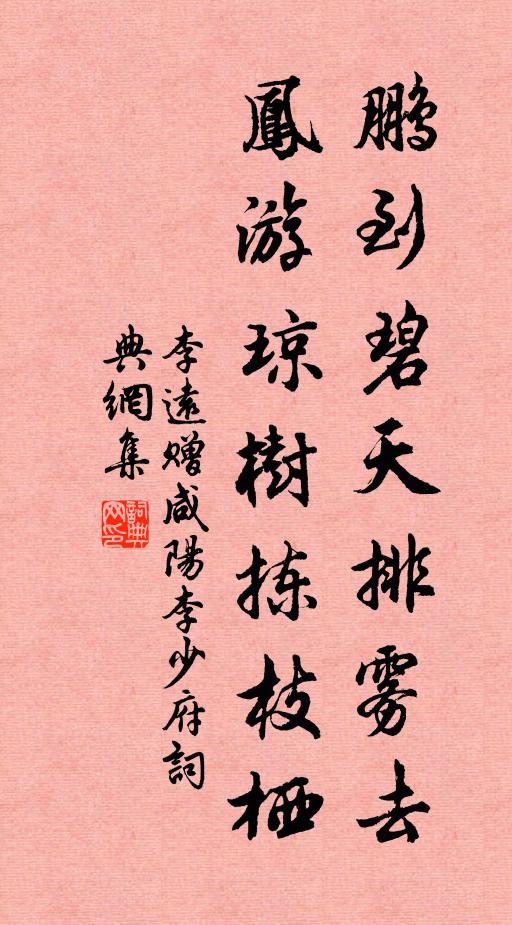 鹏到碧天排雾去
鳳游琼樹拣枝栖
李遠赠咸陽李少府詞
典網集
詞典網印